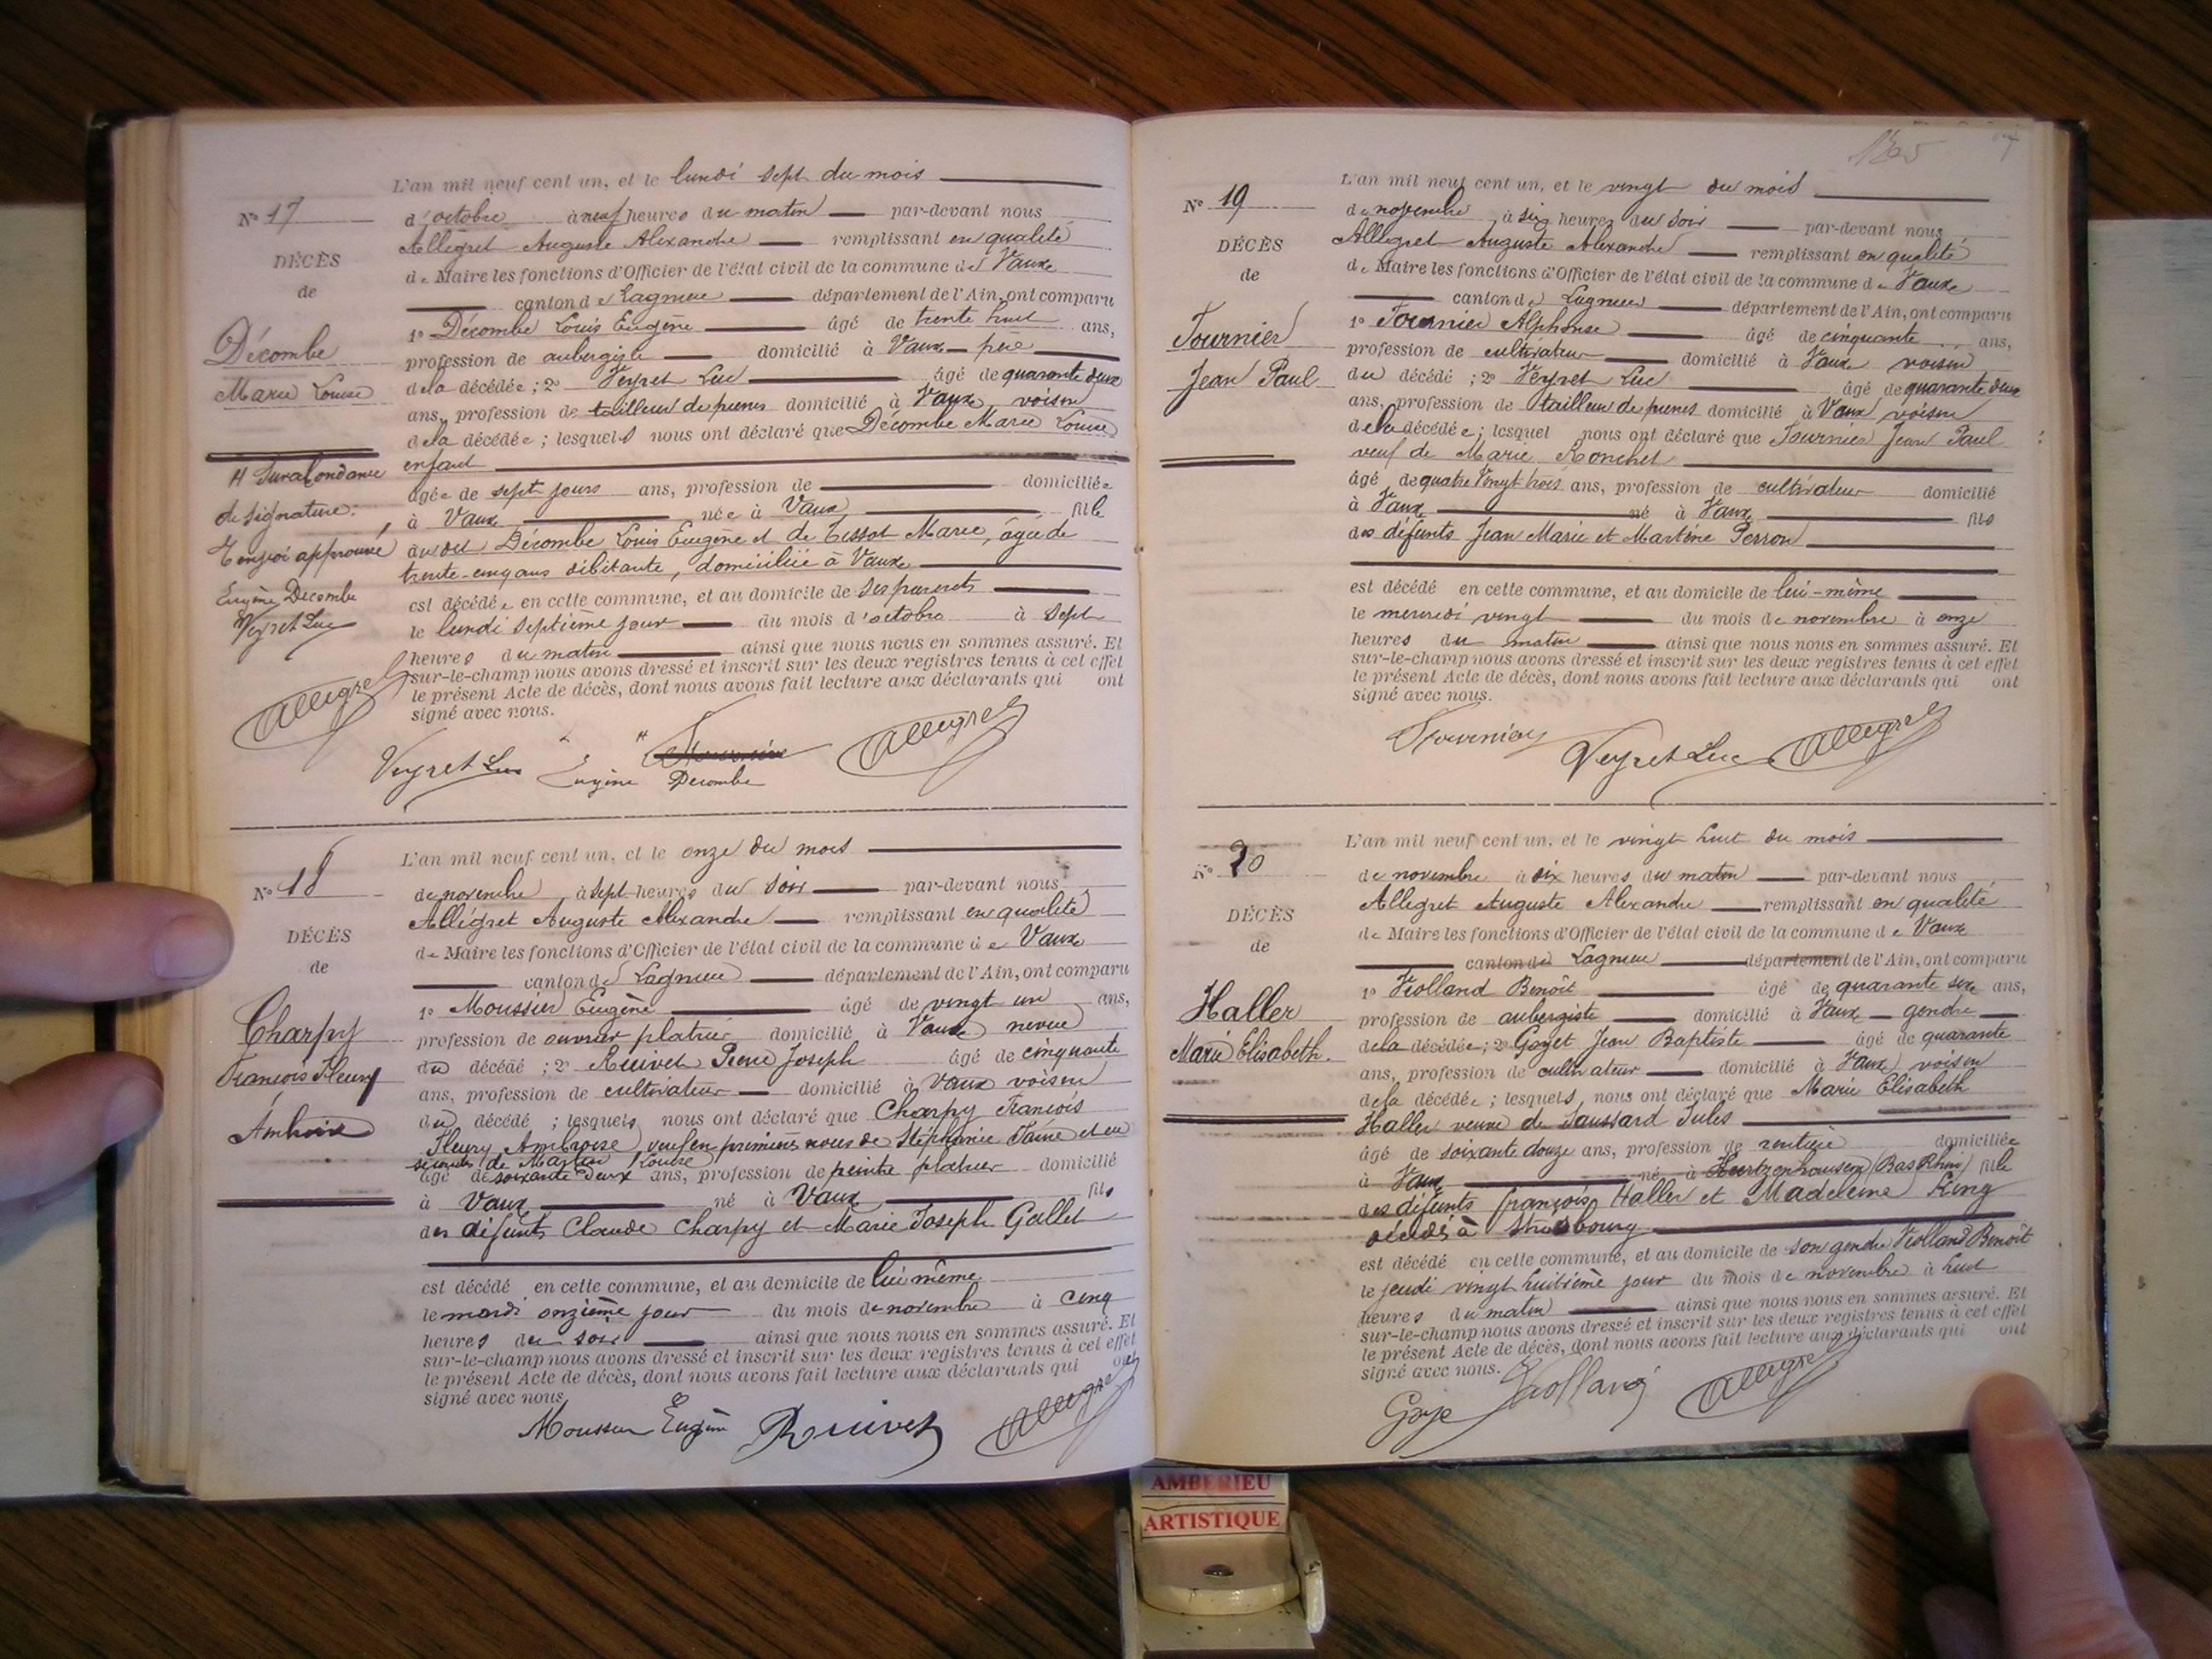 L'an mil neuf cent un, et le lundi sept du mois
N° 17
d'octobre à neuf heures du matin par-devant nous
Allégret Auguste Alexandre remplissant en qualité
DÉCÈS
de Maire les fonctions d'Officier de l'état civil de la commune de Vaux
de
canton de Lagnieu département de l'Ain, ont comparu
1° Décombe Louis Eugène âgé de trente huit ans,
Décombe
profession de aubergiste domicilié à Vaux père
Marie Louise
de la décédée ; 2° Veyret Luc âgé de quarante deux
ans, profession de tailleur de pierres domicilié à Vaux voisin
de la décédée ; lesquels nous ont déclaré que Décombe Marie Louise
enfant
Surabondance
de signature.
âgée de sept jours ans, profession de domiciliée
à Vaux née à Vaux fille
Renvoi approuvé
du dit Décombe Louis Eugène et de Tissot Marie, âgée de
trente-cinq ans débitante, domiciliée à Vaux
Eugène Decombe
Veyret Luc
est décédée en cette commune, et au domicile de ses parents
le lundi septième jour du mois d'octobre à sept
heures du matin ainsi que nous nous en sommes assuré. Et
sur-le-champ nous avons dressé et inscrit sur les deux registres tenus à cet effet
le présent Acte de décès, dont nous avons fait lecture aux déclarants qui ont
signé avec nous.
Allegret
Veyret Luc Eugène Decombe Allegret
L'an mil neuf cent un, et le onze du mois
N° 18
de novembre à sept heures du soir par-devant nous
Allégret Auguste Alexandre remplissant en qualité
DÉCÈS
de Maire les fonctions d'Officier de l'état civil de la commune de Vaux
de
canton de Lagnieu département de l'Ain, ont comparu
1° Moussier Eugène âgé de vingt un ans,
Charpy
profession de ouvrier platrier domicilié à Vaux neveu
François Fleury
Ambroise
du décédé ; 2° Ruivet Pierre Joseph âgé de cinquante
ans, profession de cultivateur domicilié à Vaux voisin
du décédé ; lesquels nous ont déclaré que Charpy François
Fleury Ambroise veuf en premières noces de Stéphanie et en
secondes de Louise
âgé de soixante deux ans, profession de peintre platrier domicilié
à Vaux né à Vaux fils
des défunts Claude Charpy et Marie Joseph Gallet
est décédé en cette commune, et au domicile de lui même
le mardi onzième jour du mois de novembre à cinq
heures du soir ainsi que nous nous en sommes assuré. Et
sur-le-champ nous avons dressé et inscrit sur les deux registres tenus à cet effet
le présent Acte de décès, dont nous avons fait lecture aux déclarants qui ont
signé avec nous
Moussier Eugène Ruivet Allegret
L'an mil neuf cent un, et le vingt du mois
N° 19
de novembre à six heures du soir par-devant nous
Allégret Auguste Alexandre remplissant en qualité
DÉCÈS
de Maire les fonctions d'Officier de l'état civil de la commune de Vaux
de
canton de Lagnieu département de l'Ain, ont comparu
1° Fournier Alphonse âgé de cinquante ans,
Fournier
Jean Paul
profession de cultivateur domicilié à Vaux voisin
du décédé ; 2° Veyret Luc âgé de quarante deux
ans, profession de tailleur de pierres domicilié à Vaux voisin
de la décédée ; lesquel nous ont déclaré que Fournier Jean Paul
veuf de Marie Ronchet
âgé de quatre vingt trois ans, profession de cultivateur domicilié
à Vaux né à Vaux fils
des défunts Jean Marie et Martine Perron
est décédé en cette commune, et au domicile de lui-même
le mercredi vingt du mois de novembre à onze
heures du matin ainsi que nous nous en sommes assuré. Et
sur-le-champ nous avons dressé et inscrit sur les deux registres tenus à cet effet
le présent Acte de décès, dont nous avons fait lecture aux déclarants qui ont
signé avec nous.
Fournier Veyret Luc Allegret
L'an mil neuf cent un, et le vingt huit du mois
N° 20
de novembre à dix heures du matin par-devant nous
Allegret Auguste Alexandre remplissant en qualité
DÉCÈS
de Maire les fonctions d'Officier de l'état civil de la commune de Vaux
de
canton de Lagnieu département de l'Ain, ont comparu
1° Violland Benoît âgé de quarante six ans,
Haller
profession de aubergiste domicilié à Vaux gendre
Marie Elisabeth.
de la décédée ; 2° Goyet Jean Baptiste âgé de quarante
ans, profession de cultivateur domicilié à Vaux voisin
de la décédée ; lesquels nous ont déclaré que Marie Elisabeth
Haller veuve de Saussard Jules
âgé de soixante douze ans, profession de rentière domiciliée
à Vaux né à (Bas Rhin) fille
des défunts François Haller et Madeleine King
décédés à Strasbourg
est décédé en cette commune, et au domicile de son gendre Violland Benoît
le jeudi vingt huitième jour du mois de novembre à huit
heures du matin ainsi que nous nous en sommes assuré. Et
sur-le-champ nous avons dressé et inscrit sur les deux registres tenus à cet effet
le présent Acte de décès, dont nous avons fait lecture aux déclarants qui ont
signé avec nous.
Goye Violland Allegret
AMBERIEU
ARTISTIQUE